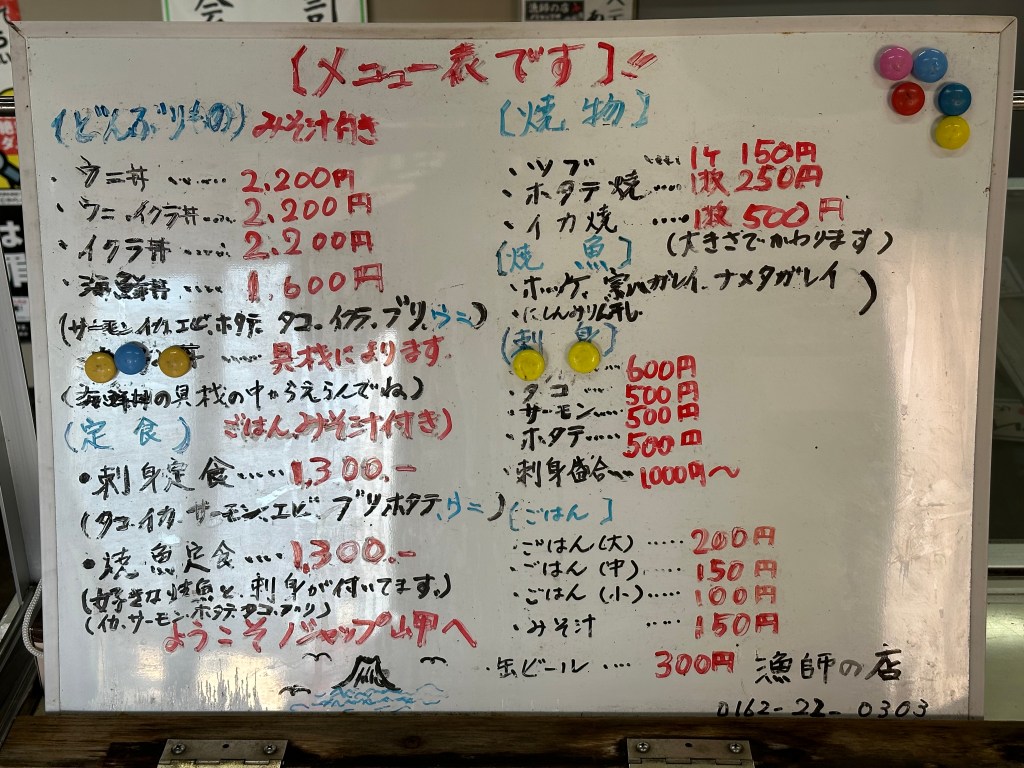 (メニュー表です)!!
(どんぶりもの) みそ汁付き
・ウニ丼 …… 2,200円
・ウニ、イクラ丼 …… 2,200円
・イクラ丼 …… 2,200円
・海鮮丼 …… 1,600円
(サーモン、イカ、エビ、ホタテ、タコ、イクラ、ブリ、ウニ)
…… 具材によります。
(海鮮丼の具材の中からえらんでね)
(定食) ごはん、みそ汁付き)
・刺身定食…… 1,300.-
(タコ、イカ、サーモン、エビ、ブリ、ホタテ、ウニ)
・焼魚定食…… 1,300.-
(好きな焼魚と、刺身が付いてます。)
(イカ、サーモン、ホタテ、タコ、ブリ)
ようこそノシャップ岬へ
[焼物]
・ツブ …… 1ケ 150円
・ホタテ焼 …… 1枚 250円
・イカ焼 …… 1枚 500円
(大きさでかわります)
[焼魚]
・ホッケ、宗八ガレイ、ナメタガレイ
・にしんみりん干し )
[刺身]
600円
・タコ…… 500円
・サーモン…… 500円
・ホタテ…… 500円
・刺身盛合…… 1000円〜
[ごはん]
・ごはん(大) …… 200円
・ごはん(中) …… 150円
・ごはん(小) …… 100円
・みそ汁 …… 150円
・缶ビール …… 300円
漁師の店
0162-22-0303